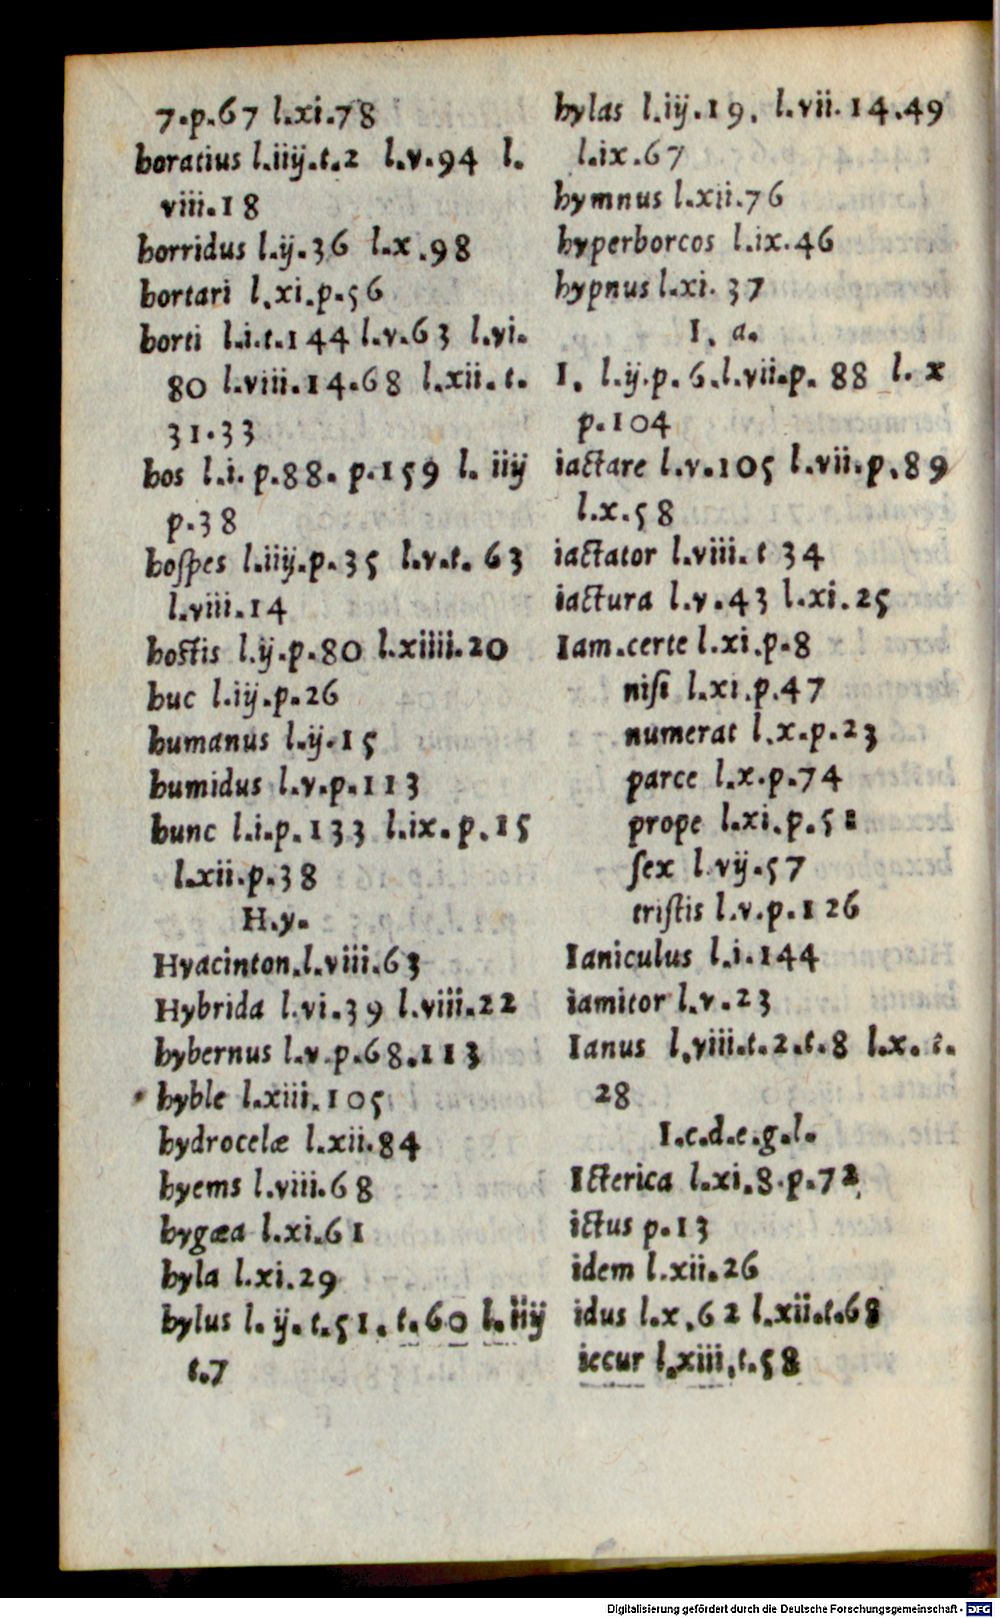 7.p.67 l.xi.78
horatius l.iiij.t.2 l.v.94 l.
viii.18
horridus l.ij.36 l.x.98
hortari l.xi.p.56
horti l.i.t.144 l.v.63 l.vi.
80 l.viii.14.68 l.xii.t.
31.33
hos l.i.p.88. p.159 l. iiij
p.38
hoſpes l.iiij.p.35 l.v.t. 63
l.viii.14
hoſtis l.ij.p.80 l.xiiii.20
huc l.iij.p.26
humanus l.ij.15
humidus l.v.p.113
hunc l.i.p.133 l.ix.p.15
l.xii.p.38
H.y.
Hyacinton.l.viii.63
Hybrida l.vi.39 l.viii.22
hybernus l.v.p.68.113
hyble l.xiii.105
hydrocelæ l.xii.84
hyems l.viii.68
hygæa l.xi.61
hyla l.xi.29
hylus l.ij.t.51.t.60 l.iiij
t.7
hylas l.iij.19. l.vii.14.49
l.ix.67
hymnus l.xii.76
hyperborcos l.ix.46
hypnus l.xi. 37
I. a.
I. l.ij.p.6.l.vii.p. 88 l. x
p.104
iactare l.v.105 l.vii.p.89
l.x.58
iactator l.viii.t 34
iactura l.v.43 l.xi.25
Iam.certe l.xi.p.8
niſi l.xi.p.47
numerat l.x.p.23
parce l.x.p.74
prope l.xi.p.58
ſex l.vij.57
triſtis l.v.p.126
Ianiculus l.i.144
iamitor l.v.23
Ianus l.viii.t.2.t.8 l.x.t.
28
I.c.d.e.g.l.
Icterica l.xi.8.p.72
ictus p.13
idem l.xii.26
idus l.x.62 l.xii.t.68
iecur l.xiii.t.58
Digitalisierung gefördert durch die Deutsche Forschungsgemeinschaft - DFG